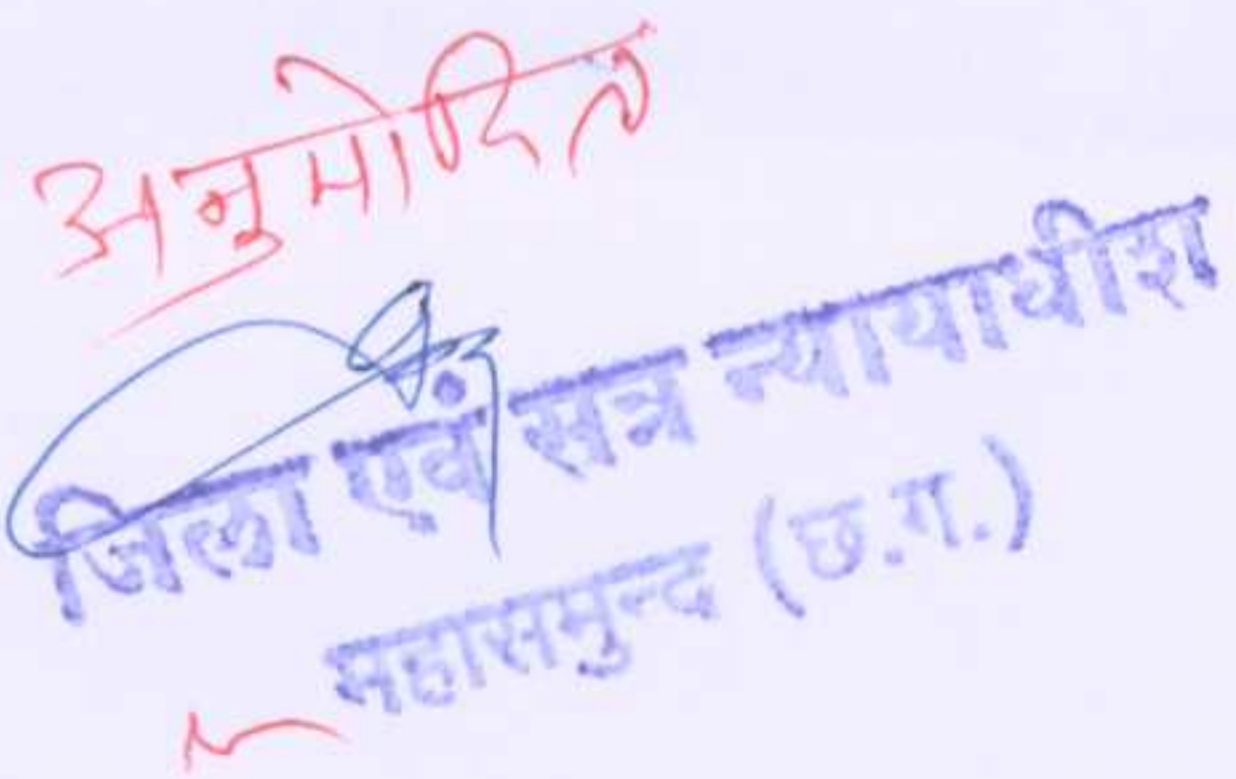 अनुमोदित
जिला एवं सत्र न्यायाधीश
महासमुन्द (छ.ग.)